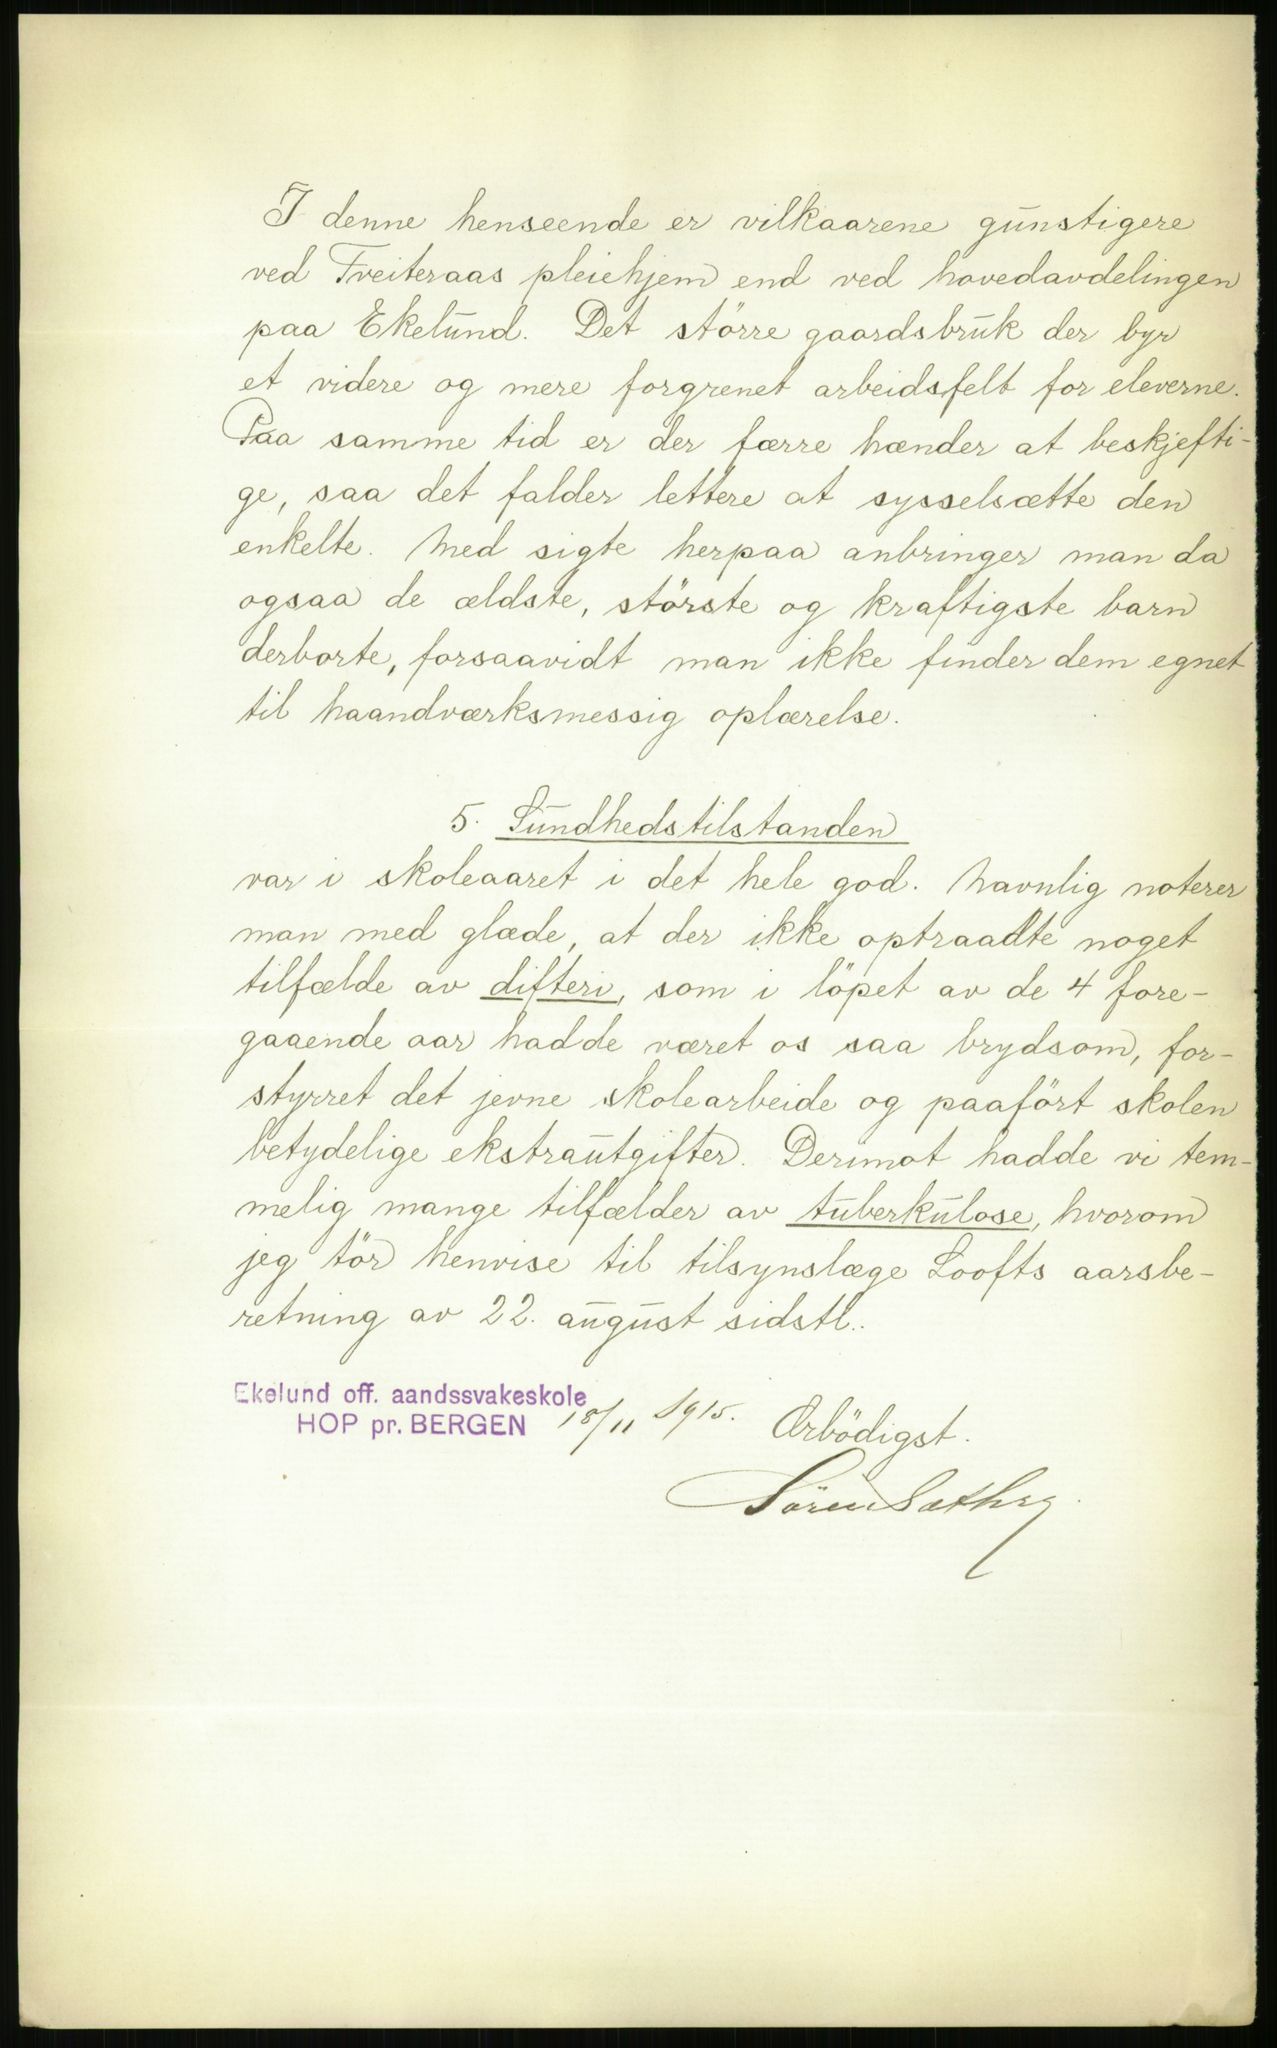 I denne henseende er vilkaarene gunstigere
ved Tveiteraas pleiehjem end ved hovedavdelingen
paa Ekelund. Det större gaardsbruk der byr
et videre og mere forgrenet arbeidsfelt for eleverne.
Paa samme tid er der færre hænder at beskjefti-
ge, saa det falder lettere at sysselsætte den
enkelte. Med sigte herpaa anbringer man da
ogsaa de ældste, störste og kraftigste barn
derborte, forsaavidt man ikke finder dem egnet
til haandværksmessig oplærelse.
5. Sundhedstilstanden
var i skoleaaret i det hele god. Navnlig noterer
man med glæde, at der ikke optraadte noget
tilfælde av difteri, som i löpet av de 4 fore-
gaaende aar hadde været os saa brydsom, for-
styrret det jevne skolearbeide og paafört skolen
betydelige ekstrautgifter. Derimot hadde vi tem-
melig mange tilfælder av tuberkulose, hvorom
jeg tör henvise til tilsynslæge Loofts aarsbe-
retning av 22. august sidstl..
Ekelund off. aandssvakeskole
HOP pr. BERGEN 18/11 1915. Ærbödigst.
Sören Sæthre